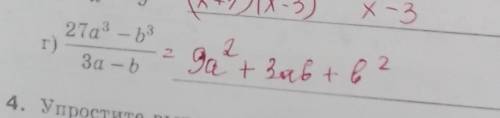 (x+3)(x-3)   x-3
г) \frac{27a³ − b³}{3a − b} = 9a² + 3ab + b²
4. Упростите